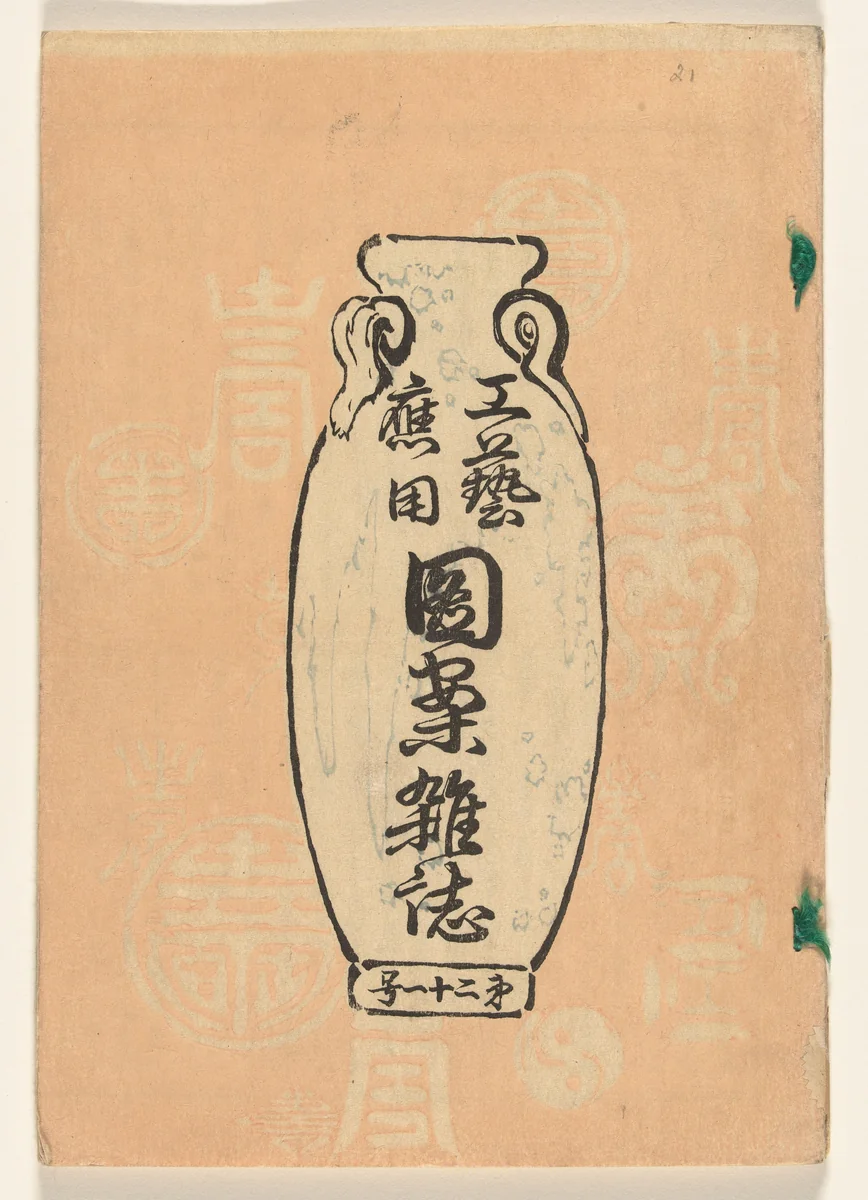 21
工藝
應用
圖案雑誌
第二十一号